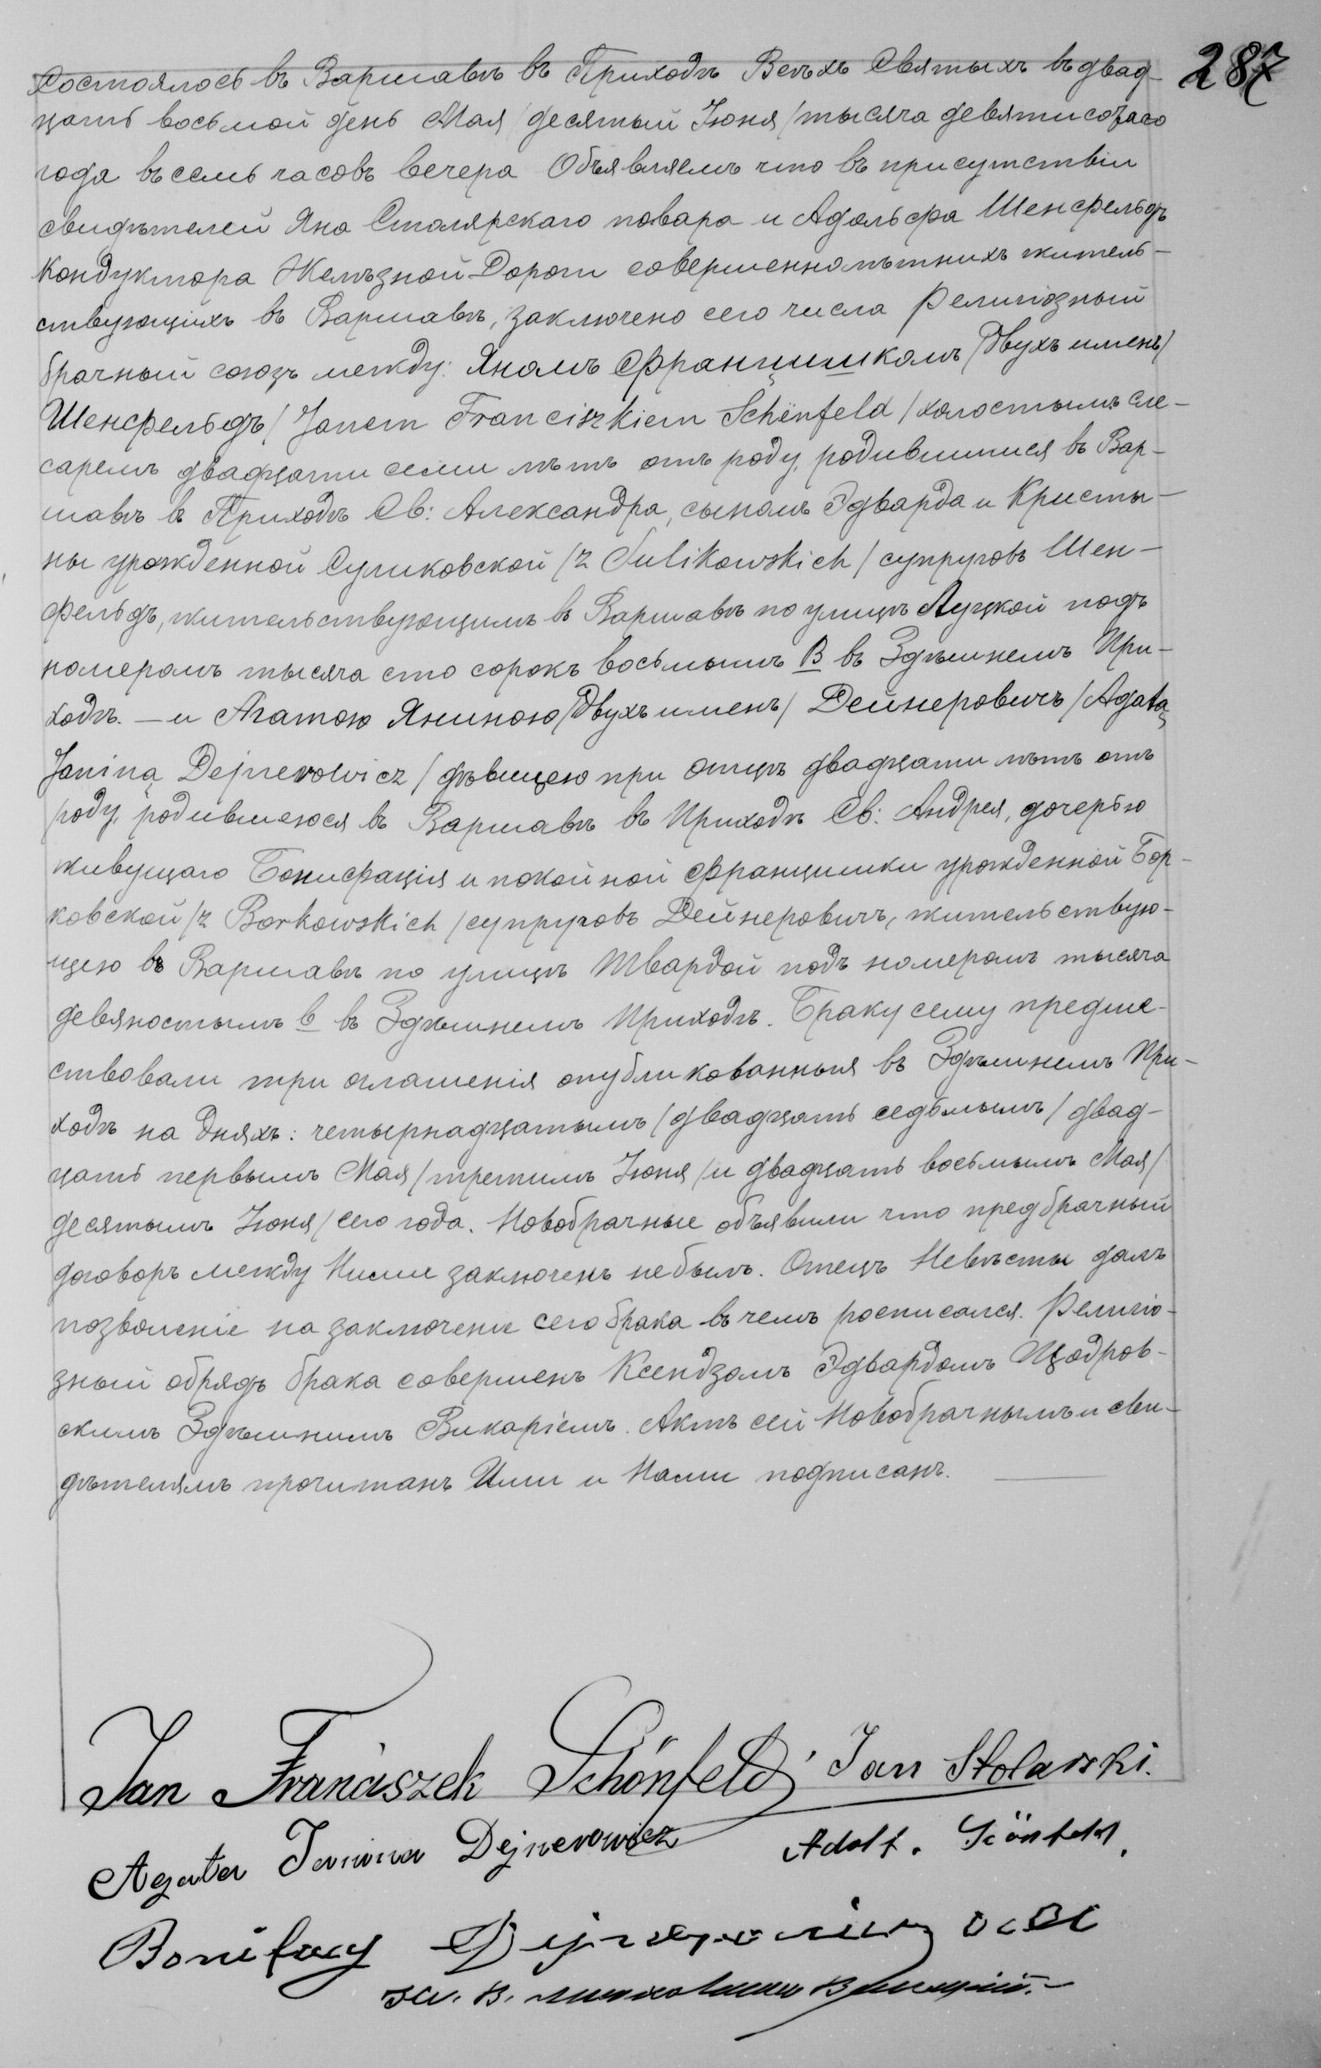 287
Состоялось въ Варшавѣ въ Приходѣ Всѣхъ Святыхъ въ двад-
цать восьмой день Мая /десятый Іюня/ тысяча девятисотаго
года въ семь часовъ вечера Объявляемъ что въ присутствіи
свидѣтелей Яна Столярскаго повара и Адольфа Шенфельдъ
Кондуктора Желѣзной Дороги совершеннолѣтнихъ житель-
ствующихъ въ Варшавѣ, заключено сего числа Религіозный
брачный союзъ между: Яномъ Францишкомъ /двухъ именъ/
Шенфельдъ /Janem Franciszkiem Schënfeld/ холостымъ сле-
саремъ двадцати семи лѣтъ отъ роду, родившимся въ Вар-
шавѣ в Приходѣ Св: Александра, сыномъ Эдварда и Кристы-
ны урожденной Суликовской /z Sulikowskich/ супруговъ Шен-
фельдъ, жительствующимъ въ Варшавѣ по улицѣ Луцкой подъ
номеромъ тысяча сто сорокъ восьмымъ В въ Здѣшнемъ При-
ходѣ. — и Агатою Яниною /двухъ именъ/ Дейнеровичъ /Agatą
Janiną Dejnerowicz/ дѣвицею при Отцѣ двадцати лѣтъ отъ
роду, родившеюся въ Варшавѣ въ Приходѣ Св: Андрея, дочерью
живущаго Бонифація и покойной Францишки урожденной Бор-
ковской /z Borkowskich/ супруговъ Дейнеровичъ, жительствую-
щею въ Варшавѣ по улицѣ Твардой подъ номеромъ тысяча
девяностымъ в въ Здѣшнемъ Приходѣ. Браку сему предше-
ствовали три оглашенія опубликованныя въ Здѣшнемъ При-
ходѣ на дняхъ: четырнадцатымъ /двадцать седьмымъ/ двад-
цать первымъ Мая /третимъ Іюня/ и двадцать восьмымъ Мая/
десятымъ Іюня/ сего года. Новобрачные объявили что предбрачный
договоръ между Ними заключенъ небылъ. Отецъ Невѣсты далъ
позволеніе на заключеніе сего брака въ чемъ росписался. Религіо-
зный обрядъ брака совершенъ Ксендзомъ Эдвардомъ Щодров-
скимъ Здѣшнимъ Викаріемъ. Актъ сей Новобрачнымъ и сви-
дѣтелямъ прочитанъ Ими и Нами подписанъ.
Jan Franciszek Schönfeld Jan Stolarski.
Agata Janina Dejnerowicz Adolf. Schönfeld.
Bonifacy Dejnerowicz